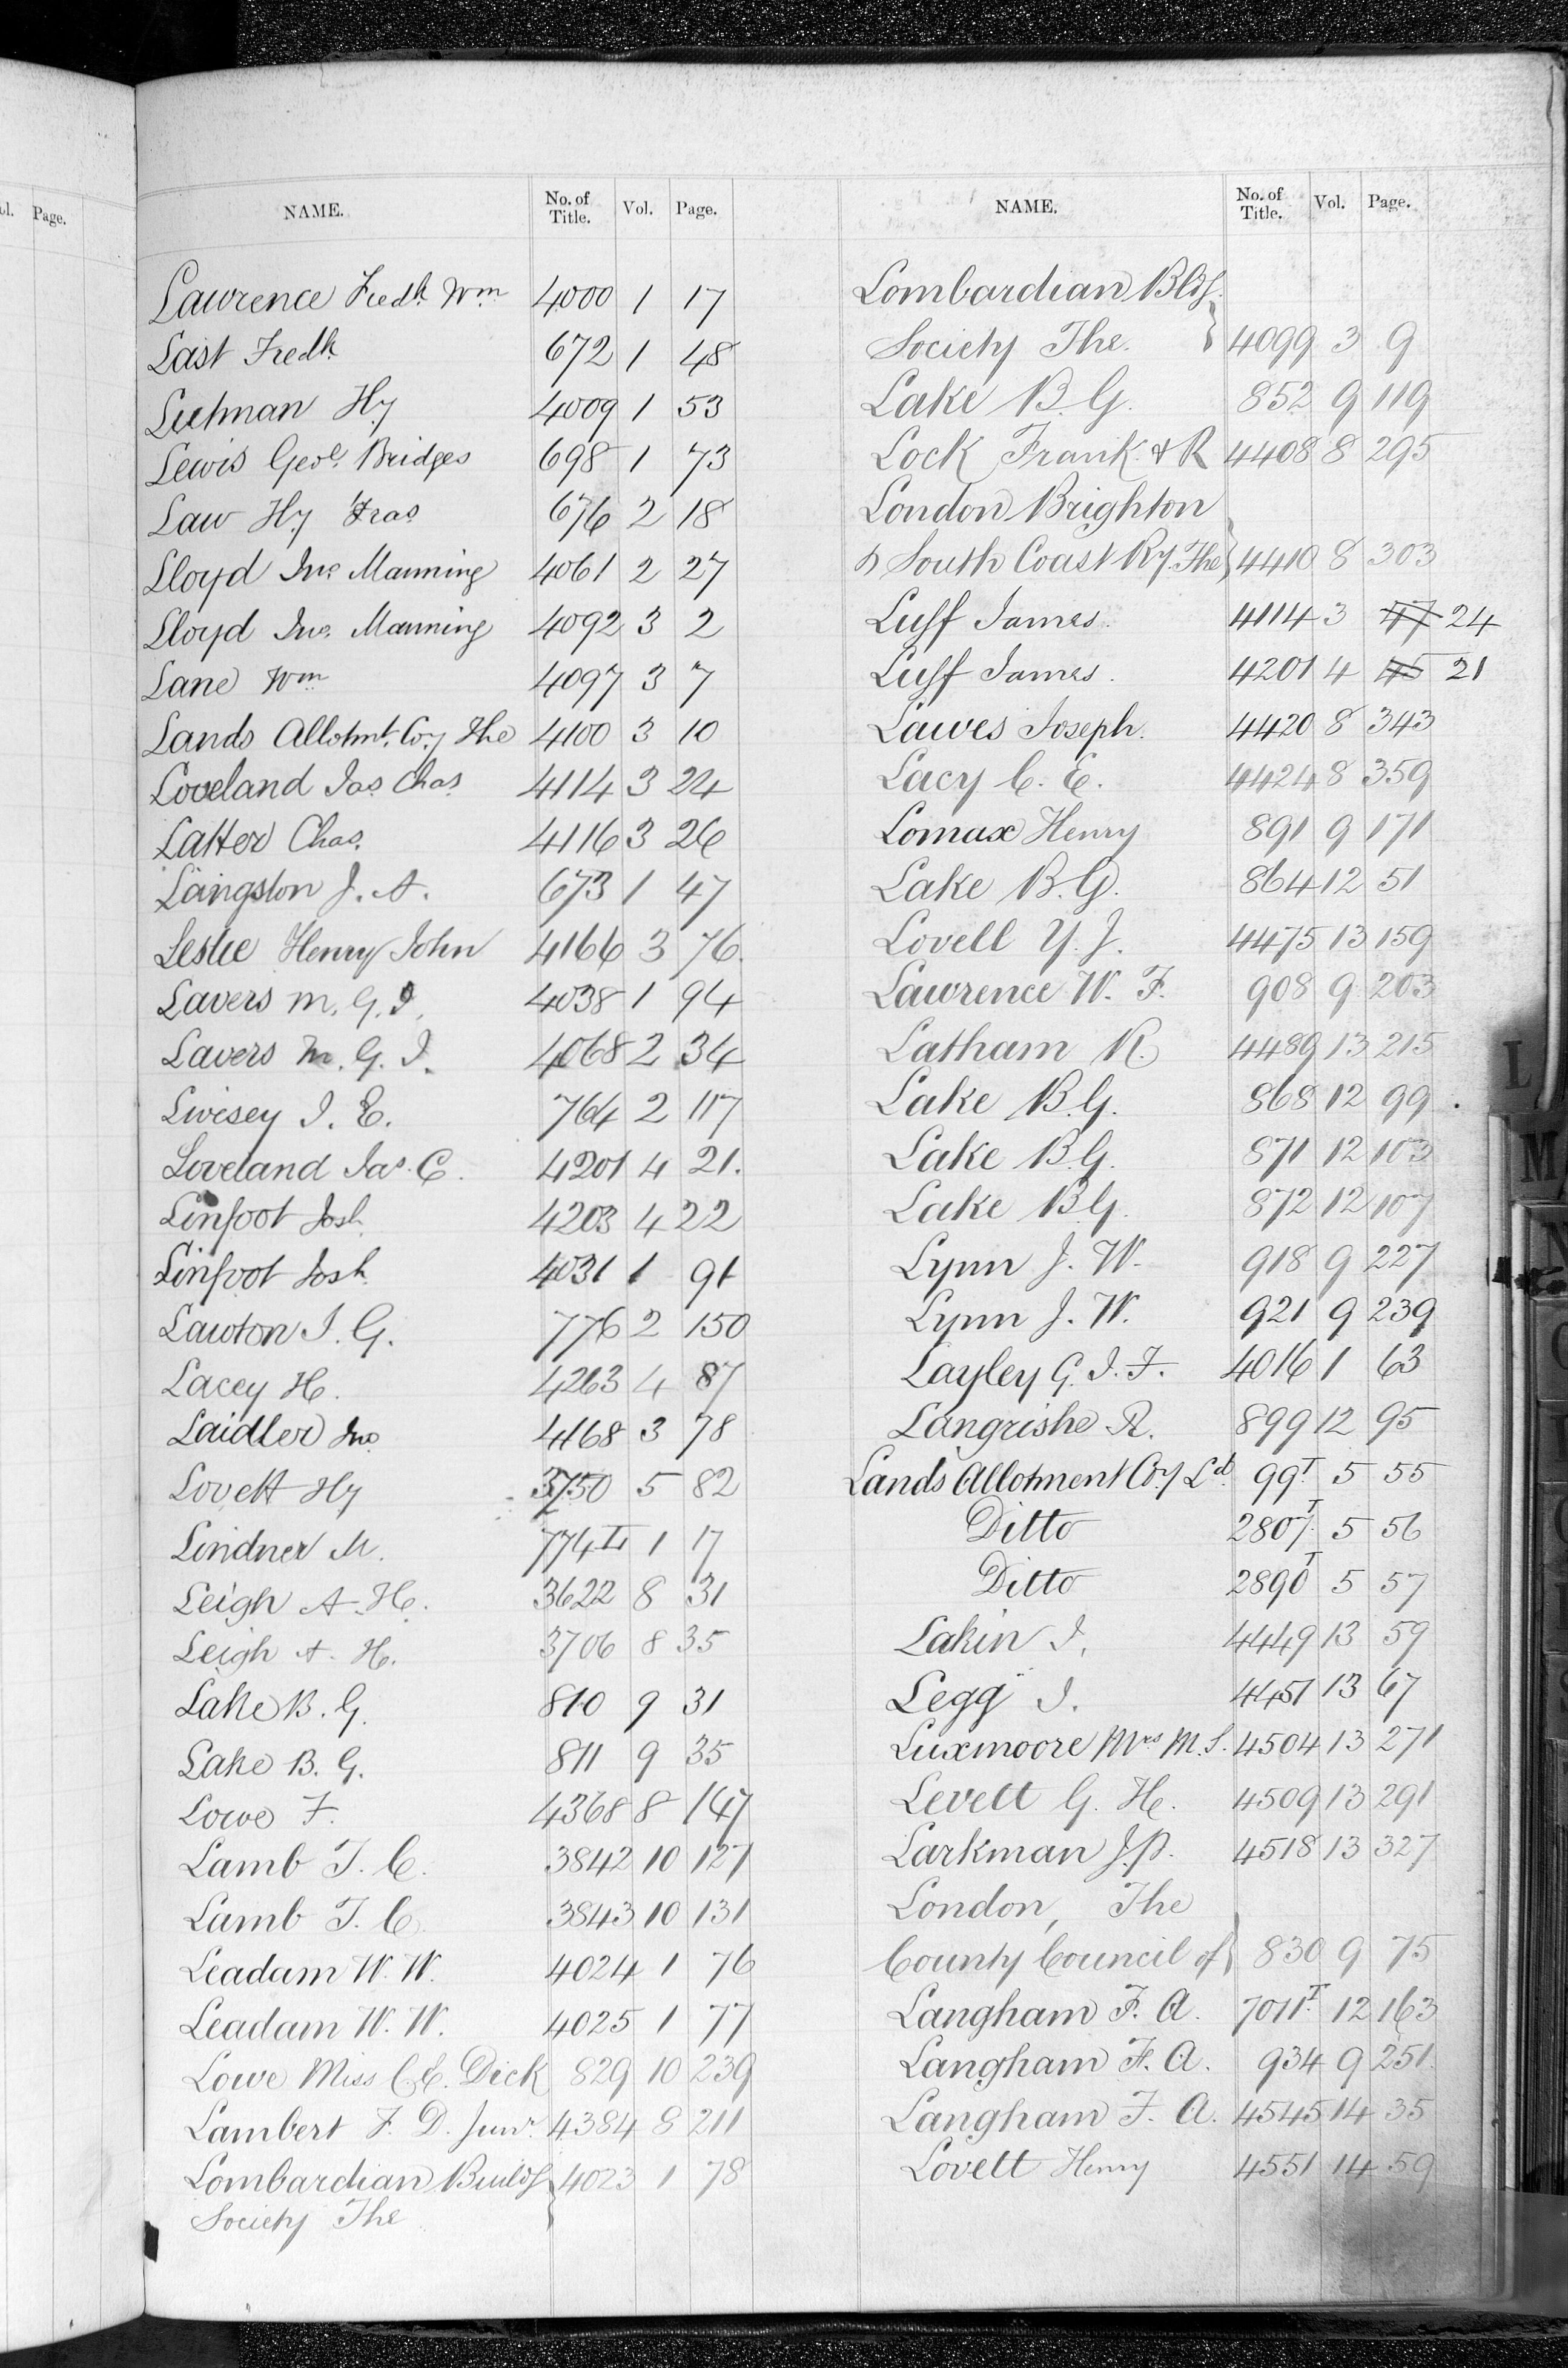 ol. Page.
NAME. No. of Title. Vol. Page.
Lawrence Fredk Wm 4000 1 17
Last Fredk 672 1 48
Hy 4009 1 53
Lewis Geoe. Bridges 698 1 73
Law Hy Fras 676 2 18
Lloyd Jno. Manning 4061 2 27
Lloyd Jno. Manning 4092 3 2
Lane Wm 4097 3 7
Lands Allotmt. Coy The 4100 3 10
Loveland Jas Chas 4114 3 24
Latter Chas. 4116 3 26
Langston J. A. 673 1 47
Leslie Henry John 4166 3 76
Lavers M. G. I. 4038 1 94
Lavers M. G. I. 4068 2 34
Livesey I. E. 764 2 117
Loveland Jas. C. 4201 4 21.
Linfoot Josh 4203 4 22
Linfoot Josh 4031 1 91
Lawton I. G. 776 2 150
Lacey H. 4263 4 87
Laidler Jno 4168 3 78
Lovett Hy 3750 5 82
Lindner M. 774 1 17
Leigh A. H. 3622 8 31
Leigh A. H. 3706 8 35
Lake B. G. 810 9 31
Lake B. G. 811 9 35
Lowe F. 4368 8 147
Lamb T. C. 3842 10 127
Lamb T. C. 3843 10 131
Leadam W. W. 4024 1 76
Leadam W. W. 4025 1 77
Lowe Miss C. E. Dick 829 10 239
Lambert F. D. Junr. 4384 8 211
Lombardian Buildg 4023 1 78
Society The
NAME. No. of Title. Vol. Page.
Lombardian Bldg.
Society The. 4099 3 9
Lake B. G. 852 9 119
Lock Frank & R 4408 8 295
London Brighton
& South Coast Ry. The 4410 8 303
Luff James. 4114 3 47 24
Luff James. 4201 4 45 21
Lawes Joseph. 4420 8 343
Lacy C. E. 4424 8 359
Lomax Henry 891 9 171
Lake B. G. 864 12 51
Lovell Y. J. 4475 13 159
Lawrence W. F. 908 9 203
Latham R. 4489 13 215
Lake B. G. 868 12 99
Lake B. G. 871 12 103
Lake B. G. 872 12 107
Lynn J. W. 918 9 227
Lynn J. W. 921 9 239
Layley G. I. F. 4016 1 63
Langrishe R. 899 12 95
Lands Allotment Coy Ld. 99T 5 55
Ditto 2807T 5 56
Ditto 2890T 5 57
Lakin I. 4449 13 59
Legg I. 4451 13 67
Luxmoore Mrs M. S. 4504 13 271
Levett G. H. 4509 13 291
Larkman J. P. 4518 13 327
London, The
County Council of 830 9 75
Langham F. A. 7011T 12 163
Langham F. A. 934 9 251
Langham F. A. 4545 14 35
Lovett Henry 4551 14 59
L
M